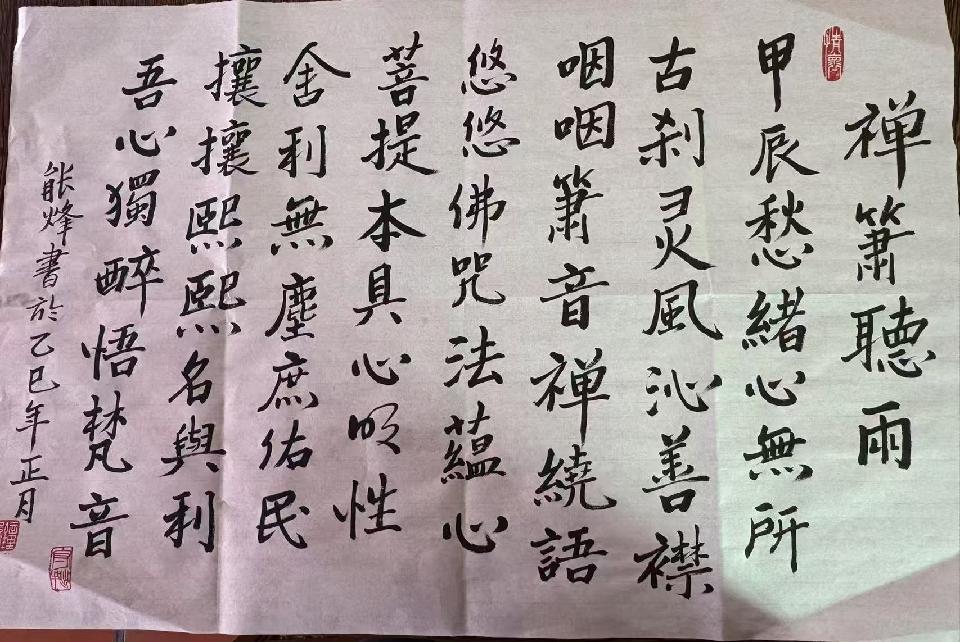 禅簫聽雨
甲辰愁緒心無所
古刹灵風沁善襟
咽咽簫音禅繞語
悠悠佛咒法蘊心
菩提本具心明性
舍利無塵庶佑民
攘攘熙熙名與利
吾心獨醉悟梵音
能烽書於乙巳年正月